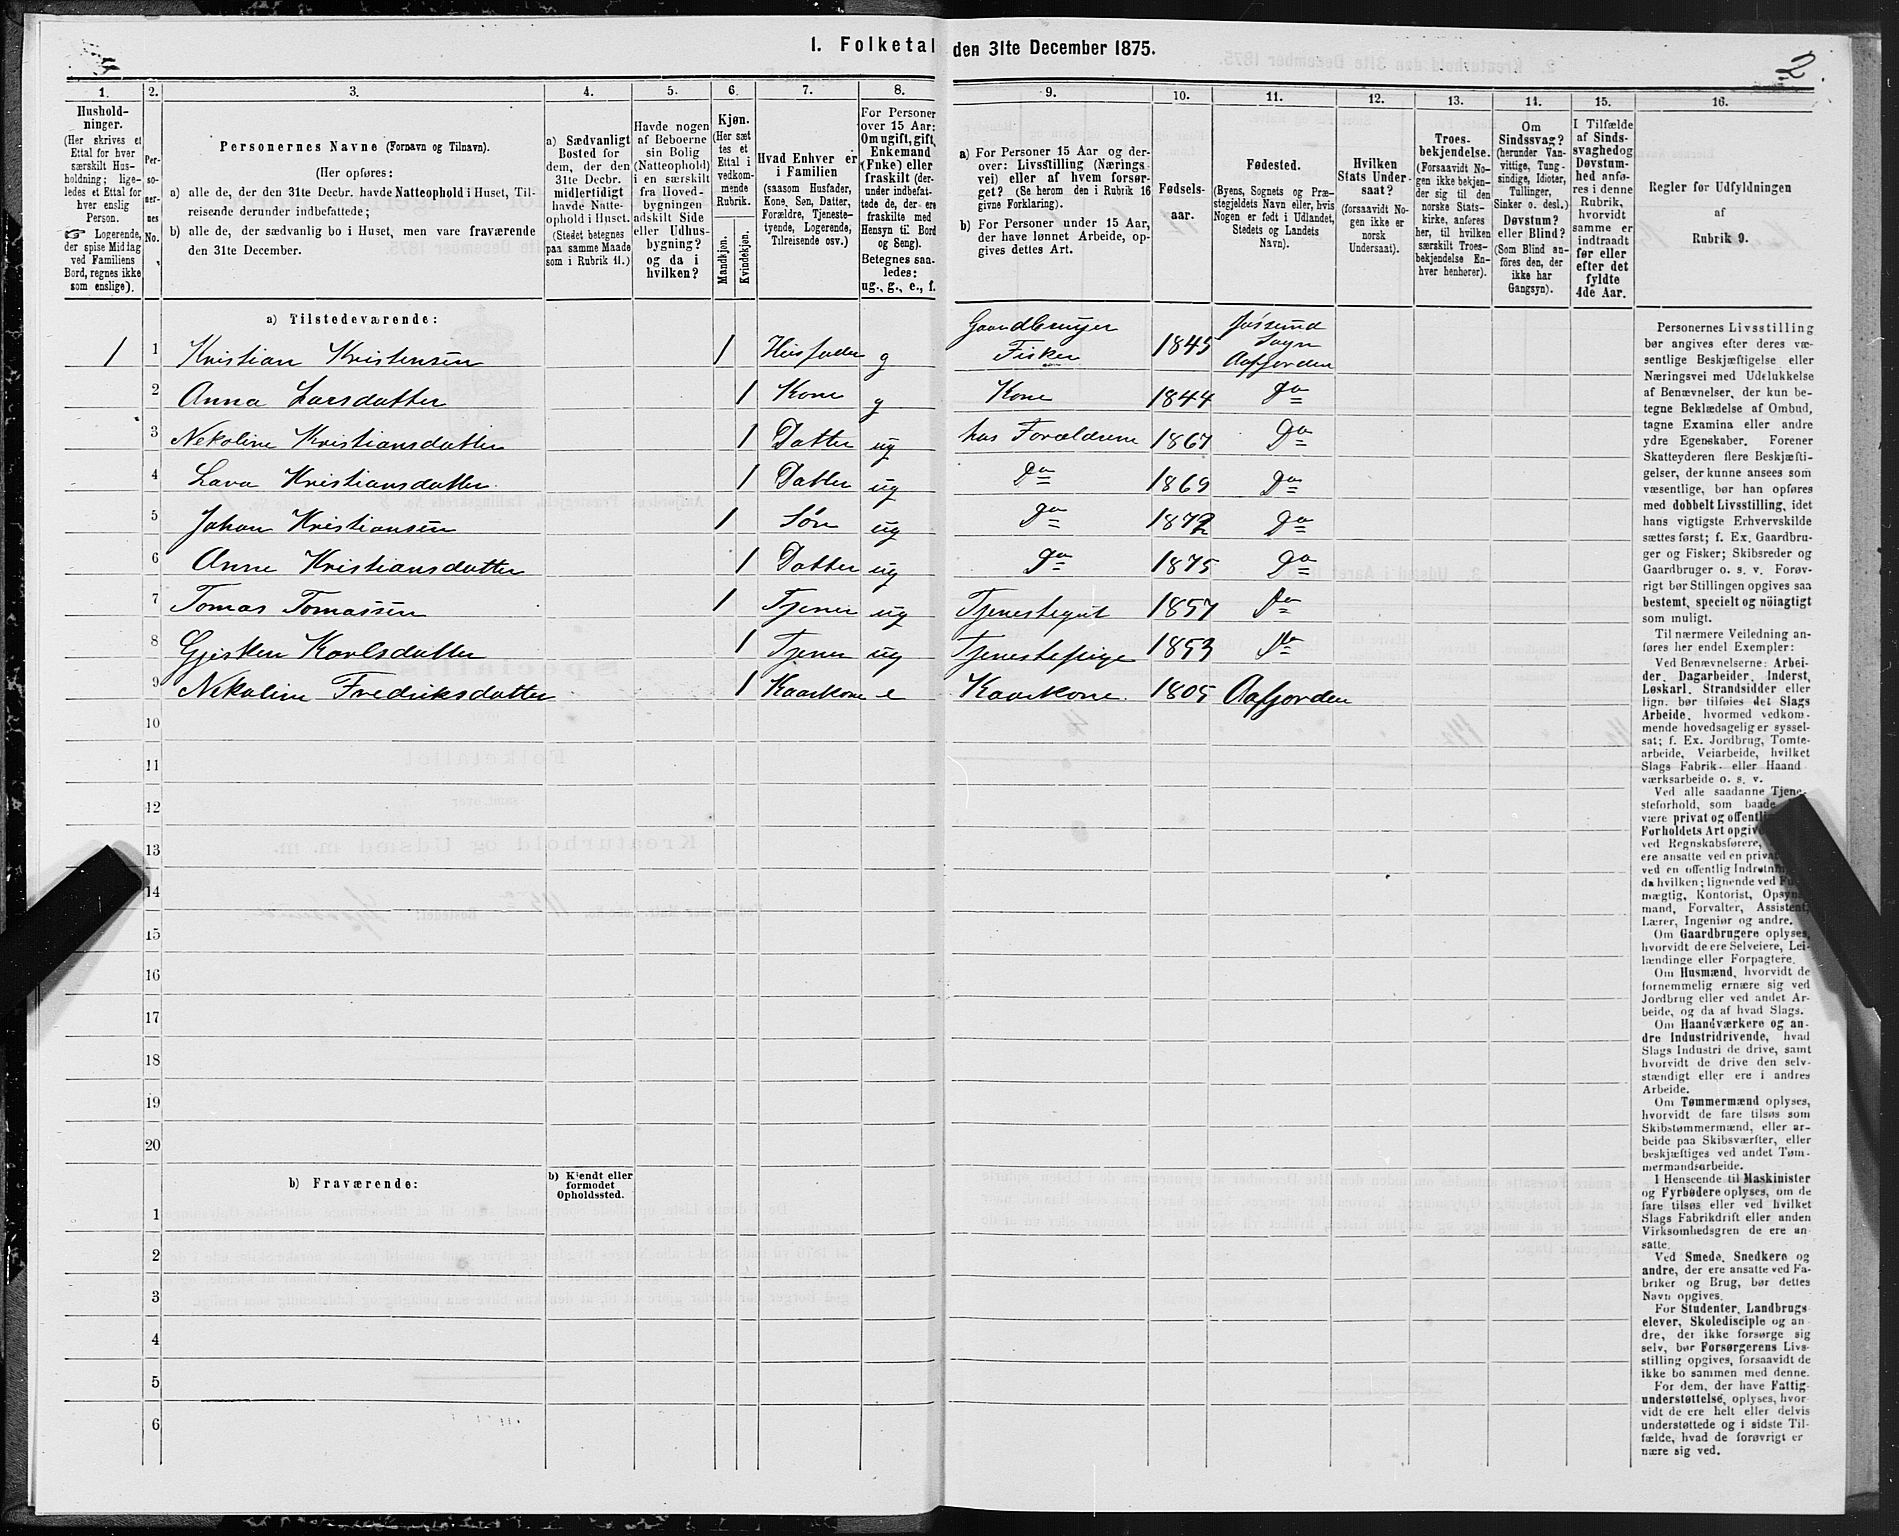 I. Folketal den 31te December 1875.
2.
1.
Hushold-
ninger.
(Her skrives et
Ettal for hver
særskilt Hus-
holdning; lige-
ledes et Ettal for
hver enslig
Person.
☞ Logerende,
der spise Middag
ved Familiens
Bord, regnes ikke
som enslige).
2.
Per-
so-
ner-
nes
No.
3.
Personernes Navne (Fornavn og Tilnavn).
(Her opføres:
a) alle de, der den 31te Decbr. havde Natteophold i Huset, Til-
reisende derunder indbefattede;
b) alle de, der sædvanlig bo i Huset, men vare fraværende
den 31te December.
4.
a) Sædvanligt
Bosted for
dem, der den
31te Decbr.
midlertidigt
havde Natte-
ophold i Huset.
(Stedet betegnes
paa samme Maade
som i Rubrik 11.)
5.
Havde nogen
af Beboerne
sin Bolig
(Natteophold)
i en særskilt
fra Hoved-
bygningen
adskilt Side
eller Udhus-
bygning?
og da i
hvilken?
6.
Kjøn.
(Her sæt
tes et
Ettal i
vedkom-
mende
Rubrik.
Mandkjøn.
Kvindekjøn.
7.
Hvad Enhver er
i Familien
(saasom Husfader,
Kone, Søn, Datter,
Forældre, Tjeneste-
tyende, Logerende,
Tilreisende osv.)
8.
For Personer
over 15 Aar:
Om ugift, gift,
Enkemand
(Enke) eller
fraskilt (der-
under indbefat-
tede de, der ere
fraskilte med
Hensyn til Bord
og Seng).
Betegnes saa-
ledes:
ug., g., e., f.
9.
a) For Personer 15 Aar og der-
over: Livsstilling (Nærings
vei) eller af hvem forsør-
get? (Se herom den i Rubrik 16
givne Forklaring).
b) For Personer under 15 Aar,
der have lønnet Arbeide, op-
gives dettes Art.
10.
Fødsels-
aar.
11.
Fødested.
(Byens, Sognets og Præ-
stegjeldets Navn eller, hvis
Nogen er født i Udlandet,
Stedets og Landets
Navn).
12.
Hvilken
Stats Under-
saat?
(forsaavidt No-
gen ikke er
norsk
Undersaat).
13.
Troes-
bekjendelse.
(Forsaavidt No-
gen ikke bekjen-
der sig til den
norske Stats-
kirke, anføres
her, til hvilken
særskilt Troes-
bekjendelse En-
hver henhører).
14.
Om
Sindssvag?
(herunder Van-
vittige, Tung-
sindige, Idioter,
Tullinger,
Sinker o. desl.)
Døvstum?
eller Blind?
(Som Blind an-
føres den, der
ikke har
Gangsyn).
15.
I Tilfælde
af Sinds-
svaghed og
Døvstum-
hed anfø-
res i denne
Rubrik,
hvorvidt
samme er
indtraadt
før eller
efter det
fyldte
4de Aar.
16.
Regler for Udfyldningen
af
Rubrik 9.
a) Tilstedeværende:
1 1 Kristian Kristensen 1 Husfader g Gaardbruger Fisker 1845 Jøssund Sogn Aafjorden
2 Anna Larsdatter 1 Kone g Kone 1844 Do
3 Nekoline Kristiansdatter 1 Datter ug hos Forældrene 1867 Do
4 Lava Kristiansdatter 1 Datter ug Do 1869 Do
5 Johan Kristiansen 1 Søn ug Do 1872 Do
6 Anne Kristiansdatter 1 Datter ug Do 1875 Do
7 Tomas Tomassen 1 Tjener ug Tjenestegut 1857 Do
8 Gjisken Karlsdatter 1 Tjener ug Tjenestepige 1853 Do
9 Nekoline Fredriksdatter 1 Kaarkone e Kaarkone 1805 Aafjorden
10
11
12
13
14
15
16
17
18
19
20
b) Fraværende:
b) Kjendt eller
formodet
Opholdssted.
1
2
3
4
5
6
Personernes Livsstilling
bør angives efter deres væ-
sentlige Beskjæftigelse eller
Næringsvei med Udelukkelse
af Benævnelser, der kun be-
tegne Beklædelse af Ombud,
tagne Examina eller andre
ydre Egenskaber. Forener
Skatteyderen flere Beskjæfti-
gelser, der kunne ansees som
væsentlige, bør han opføres
med dobbelt Livsstilling, idet
hans vigtigste Erhvervskilde
sættes først; f. Ex. Gaardbru-
ger og Fisker; Skibsreder og
Gaardbruger o. s. v. Forøv-
rigt bør Stillingen opgives saa
bestemt, specielt og nöiagtigt
som muligt.
Til nærmere Veiledning an-
føres her endel Exempler:
Ved Benævnelserne: Arbei-
der, Dagarbeider, Inderst,
Løskarl, Strandsidder eller
lign. bør tilføies det Slags
Arbeide, hvormed vedkom-
mende hovedsagelig er syssel-
sat; f. Ex. Jordbrug, Tomte-
arbeide, Veiarbeide, hvilket
Slags Fabrik- eller Haand
værksarbeide o. s. v.
Ved alle saadanne Tjene-
steforhold, som baade
være privat og offentli
Forholdets Art opgiv
ved Regnskabsførere,
ere ansatte ved en privat
ved en offentlig Indretning
da hvilken; lignende ved
mægtig, Kontorist, Opsyns-
mand, Forvalter, Assistent,
Lærer, Ingeniør og andre.
Om Gaardbrugere oplyses,
hvorvidt de ere Selveiere, Lei-
lændinge eller Forpagtere.
Om Husmænd, hvorvidt de
fornemmelig ernære sig ved
Jordbrug eller ved andet Ar-
beide, og da af hvad Slags.
Om Haandværkere og an-
dre Industridrivende, hvad
Slags Industri de drive, samt
hvorvidt de drive den selv-
stændigt eller ere i andres
Arbeide.
Om Tømmermænd oplyses,
hvorvidt de fare tilsøs som
Skibstømmermænd, eller ar-
beide paa Skibsværfter, eller
beskjæftiges ved andet Tøm-
mermandsarbeide.
I Henseende til Maskinister
og Fyrbødere oplyses, om de
fare tilsøs eller ved hvilket
Slags Fabrikdrift eller anden
Virksomhedsgren de ere an-
satte.
Ved Smede, Snedkere og
andre, der ere ansatte ved Fa-
briker og Brug, bør dettes
Navn opgives.
For Studenter, Landbrugs
elever, Skoledisciple og an
dre, der ikke forsørge sig
selv, bør Forsørgerens Livs-
stilling opgives, forsaavidt de
ikke bo sammen med denne.
For dem, der have Fattig-
understøttelse, oplyses, hvor-
vidt de ere helt eller delvis
understøttede og i sidste Til-
fælde, hvad de forøvrigt er
nære sig ved.